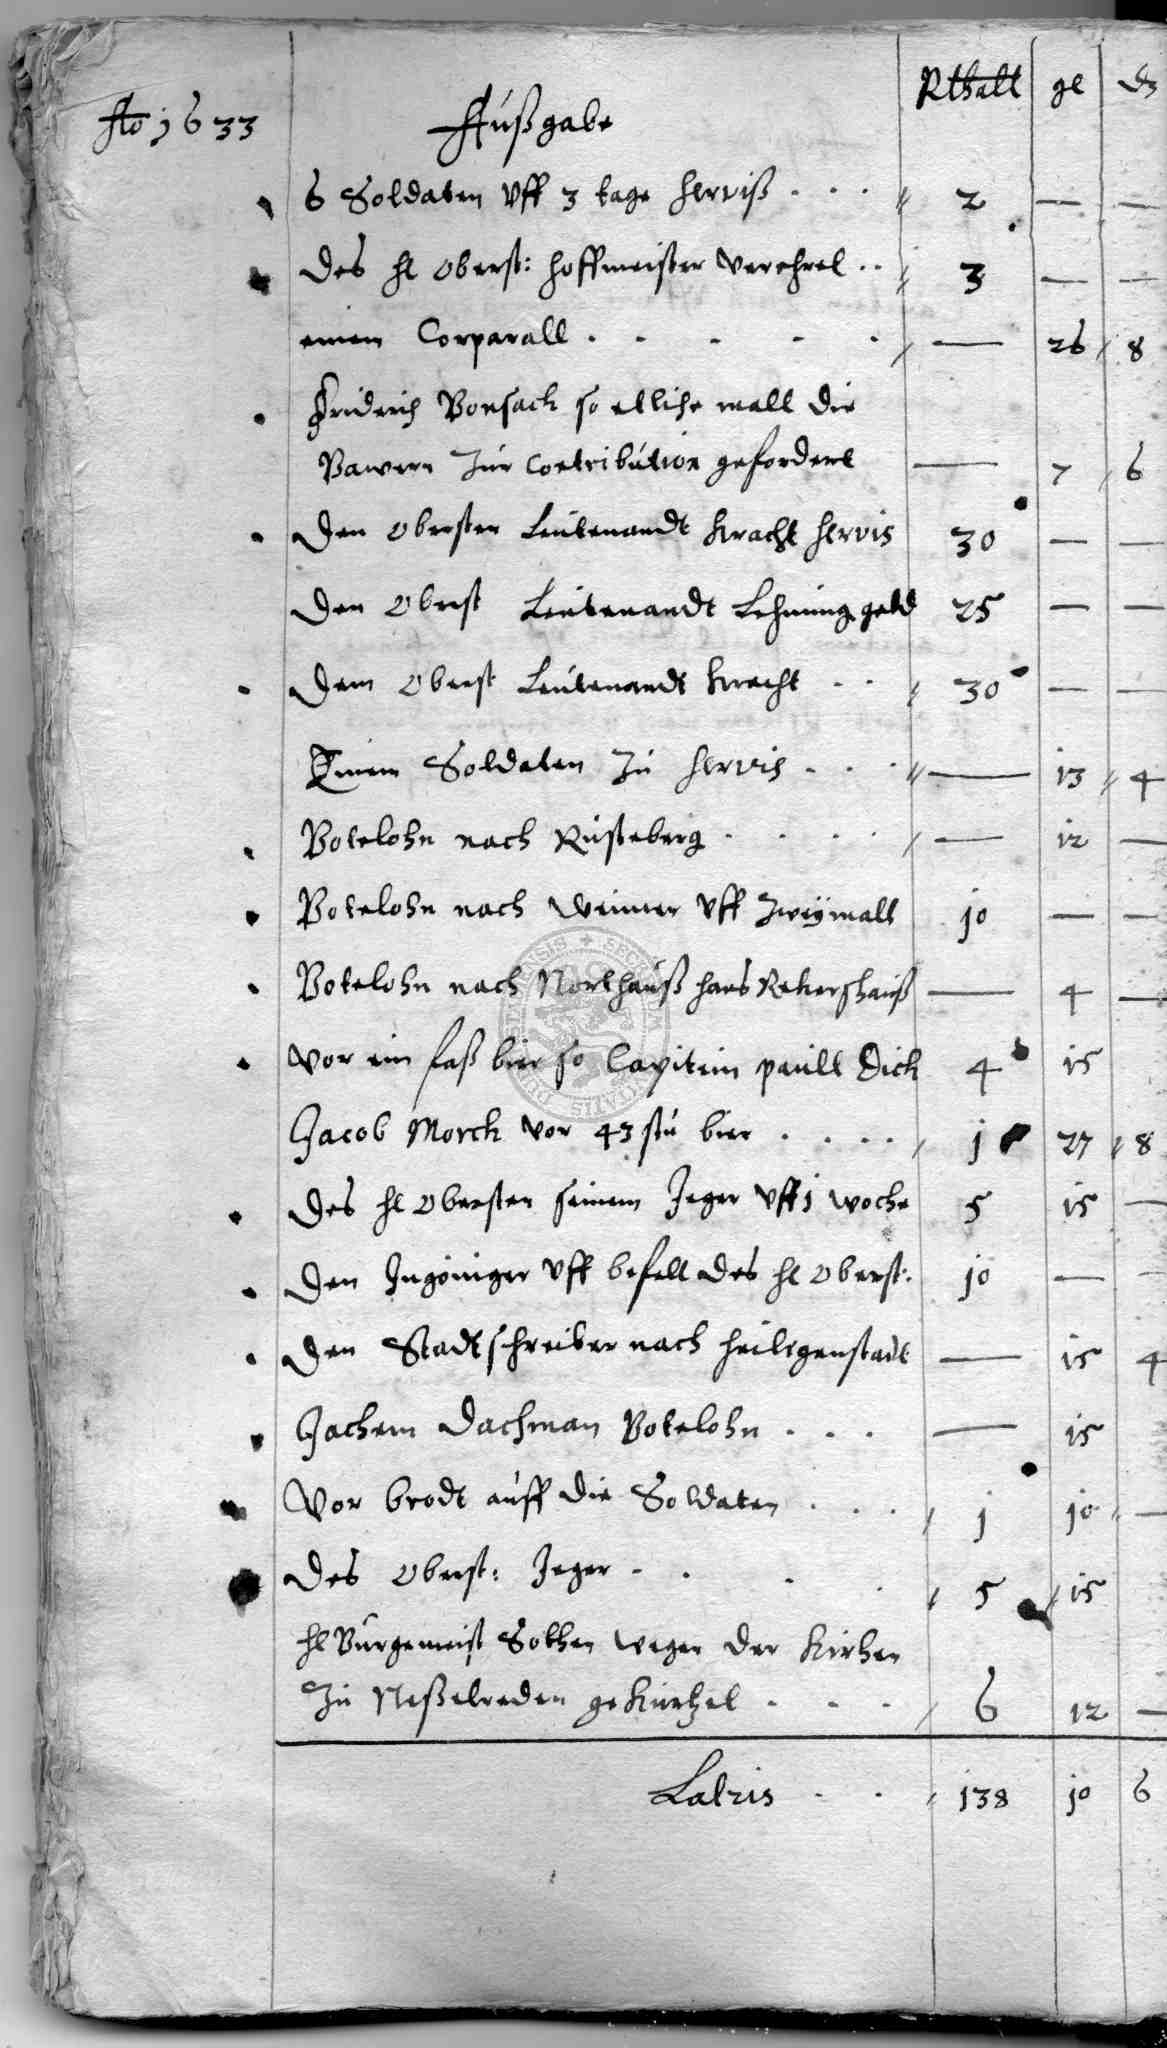 Rthall gl ₰
Ao 1633 Außgabe
6 Soldaten Uff 3 tage serviß . . . 2 — —
des hl Oberst: hoffmeister verehret . . 3 — —
einem Corparall . . . . . — 26 8
Friderich Bonsack so etliche mall die
Bawern Zur Contribution gefordert — 7 6
den Obersten Leutenandt Kracht servis 30 — —
den Oberst Leutenandt Lehnung geld 25 — —
dem Oberst Leutenandt Kracht . . 30 — —
Einem Soldaten Zu servis . . . — 13 4
Botelohn nach Rusteberg . . . . — 12 —
Botelohn nach Weimer Uff Zweymall 10 — —
Botelohn nach Northauß hans Rekershauß — 4 —
Vor ein faß bier so Capitein paull Dick 4 15
Jacob Morch vor 43 stu bier . . . . 1 27 8
des hl Obersten seinem Jeger Uff 1 woche 5 15 —
den Ingöniger Uff befell des hl Oberst: 10 — —
den Stadtschreiber nach heiligenstadt — 15 4
Jachem Dachman Botelohn . . . — 15
Vor brodt auff die Soldaten . . . 1 10 —
des Oberst: Jeger . . . . 5 15
hl Burgemeist Sothen wegen der Kirchen
Zu Neßelreden gekurtzet . . . 6 12 —
Latris . . 138 10 6